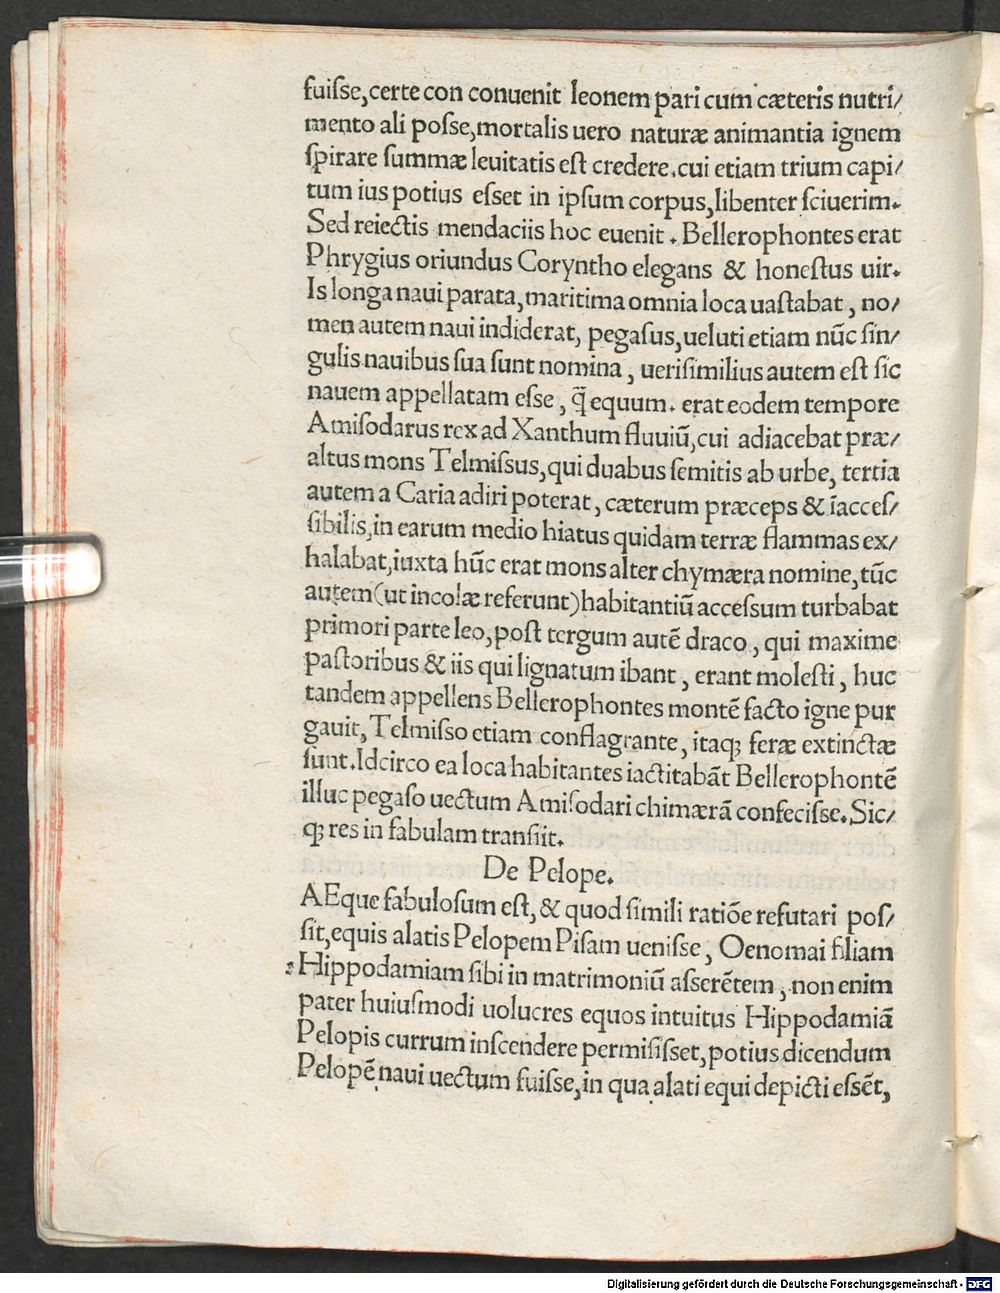 fuiſse,certe con conuenit leonem pari cum cæteris nutri/
mento ali poſse,mortalis uero naturæ animantia ignem
ſpirare ſummæ leuitatis eſt credere.cui etiam trium capi/
tum ius potius eſset in ipſum corpus,libenter ſciuerim.
Sed reiectis mendaciis hoc euenit. Bellerophontes erat
Phrygius oriundus Coryntho elegans & honeſtus uir.
Is longa naui parata,maritima omnia loca uaſtabat, no/
men autem naui indiderat, pegaſus,ueluti etiam nūc ſin/
gulis nauibus ſua ſunt nomina, ueriſimilius autem eſt ſic
nauem appellatam eſse, q̄ equum. erat eodem tempore
Amiſodarus rex ad Xanthum fluuiū,cui adiacebat præ/
altus mons Telmiſsus,qui duabus ſemitis ab urbe, tertia
autem a Caria adiri poterat, cæterum præceps & īacceſ/
ſibilis,in earum medio hiatus quidam terræ flammas ex/
halabat,iuxta hūc erat mons alter chymæra nomine,tūc
autem(ut incolæ referunt)habitantiū acceſsum turbabat
primori parte leo,poſt tergum autē draco, qui maxime
paſtoribus & iis qui lignatum ibant, erant moleſti, huc
tandem appellens Bellerophontes montē facto igne pur
gauit,Telmiſso etiam conflagrante, itaq; feræ extinctæ
ſunt.Idcirco ea loca habitantes iactitabāt Bellerophontē
illuc pegaſo uectum Amiſodari chimærā confeciſse.Sic/
q; res in fabulam tranſiit.
De Pelope.
AEque fabuloſum eſt, & quod ſimili ratiōe refutari poſ/
ſit,equis alatis Pelopem Piſam ueniſse, Oenomai filiam
Hippodamiam ſibi in matrimoniū aſserētem, non enim
pater huiuſmodi uolucres equos intuitus Hippodamiā
Pelopis currum inſcendere permiſiſset,potius dicendum
Pelopē naui uectum fuiſse,in qua alati equi depicti eſsēt,
Digitalisierung gefördert durch die Deutsche Forschungsgemeinschaft - DFG